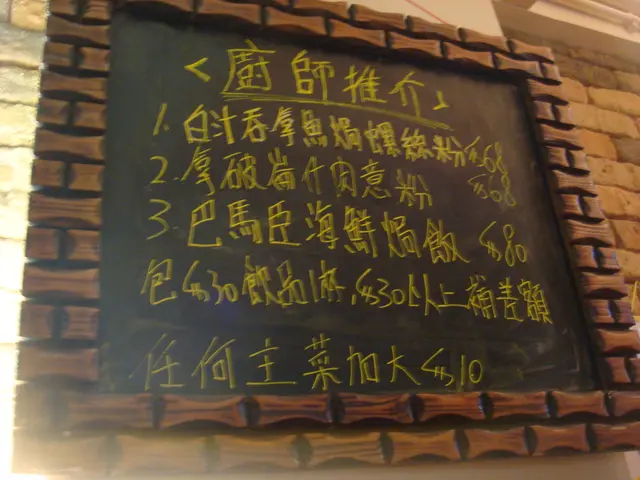 <廚師推介>
1. 白汁吞拿魚焗螺絲粉 $68
2. 拿破崙什肉意粉 $68
3. 巴馬臣海鮮焗飯 $80
包$30飲品1杯,$30以上補差額
任何主菜加大$10